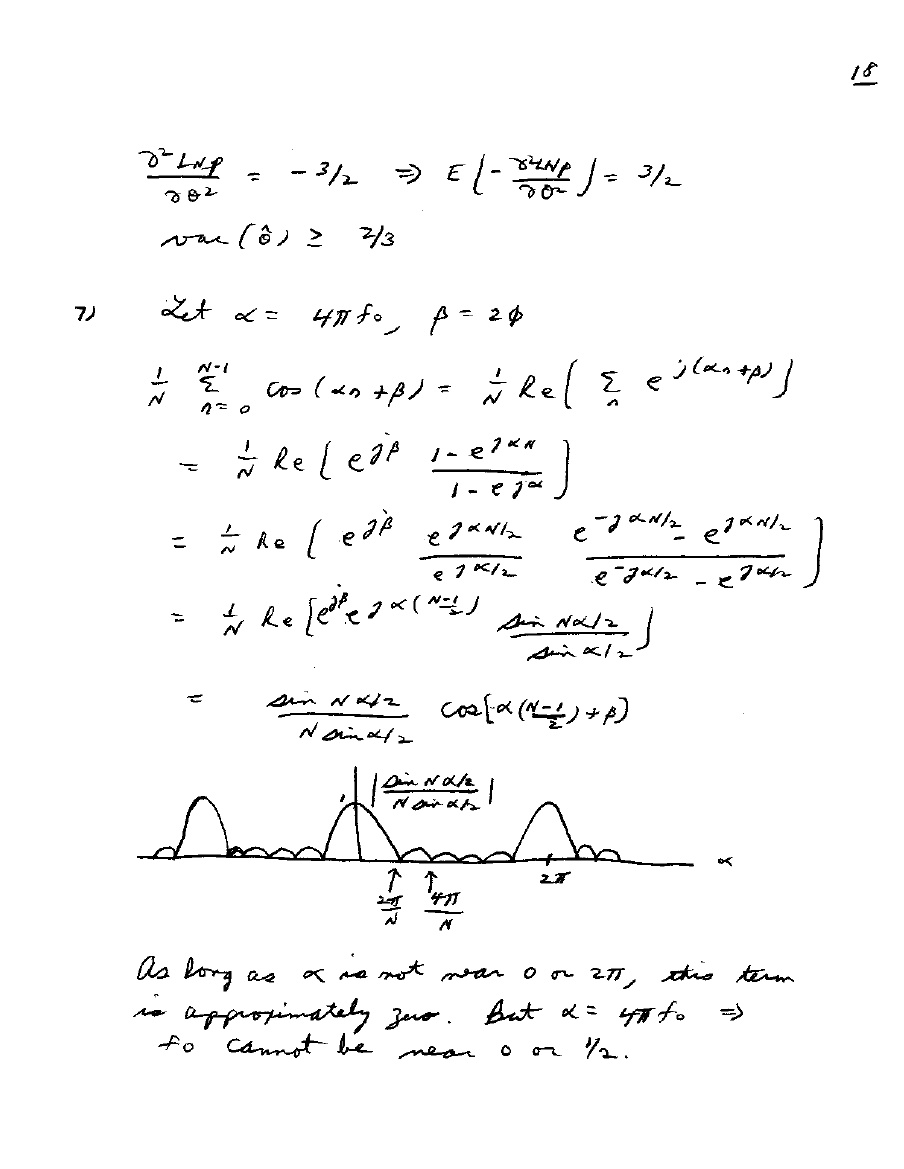 18
∂² ln p / ∂θ² = - 3/2 ⇒ E[ - ∂² ln p / ∂θ² ] = 3/2
var(θ̂) ≥ 2/3
7) Let α = 4πf₀, β = 2φ
1/N Σ_{n=0}^{N-1} cos(αn + β) = 1/N Re[ Σ_n e^{j(αn+β)} ]
= 1/N Re[ e^{jβ} (1 - e^{jαN}) / (1 - e^{jα}) ]
= 1/N Re[ e^{jβ} e^{jαN/2} / e^{jα/2} (e^{-jαN/2} - e^{jαN/2}) / (e^{-jα/2} - e^{jα/2}) ]
= 1/N Re[ e^{jβ} e^{jα((N-1)/2)} sin Nα/2 / sin α/2 ]
= sin Nα/2 / N sin α/2 cos[α((N-1)/2) + β]
1 | sin Nα/2 / N sin α/2 |
α
2π/N 4π/N 2π
As long as α is not near 0 or 2π, this term
is approximately zero. But α = 4πf₀ ⇒
f₀ cannot be near 0 or 1/2.